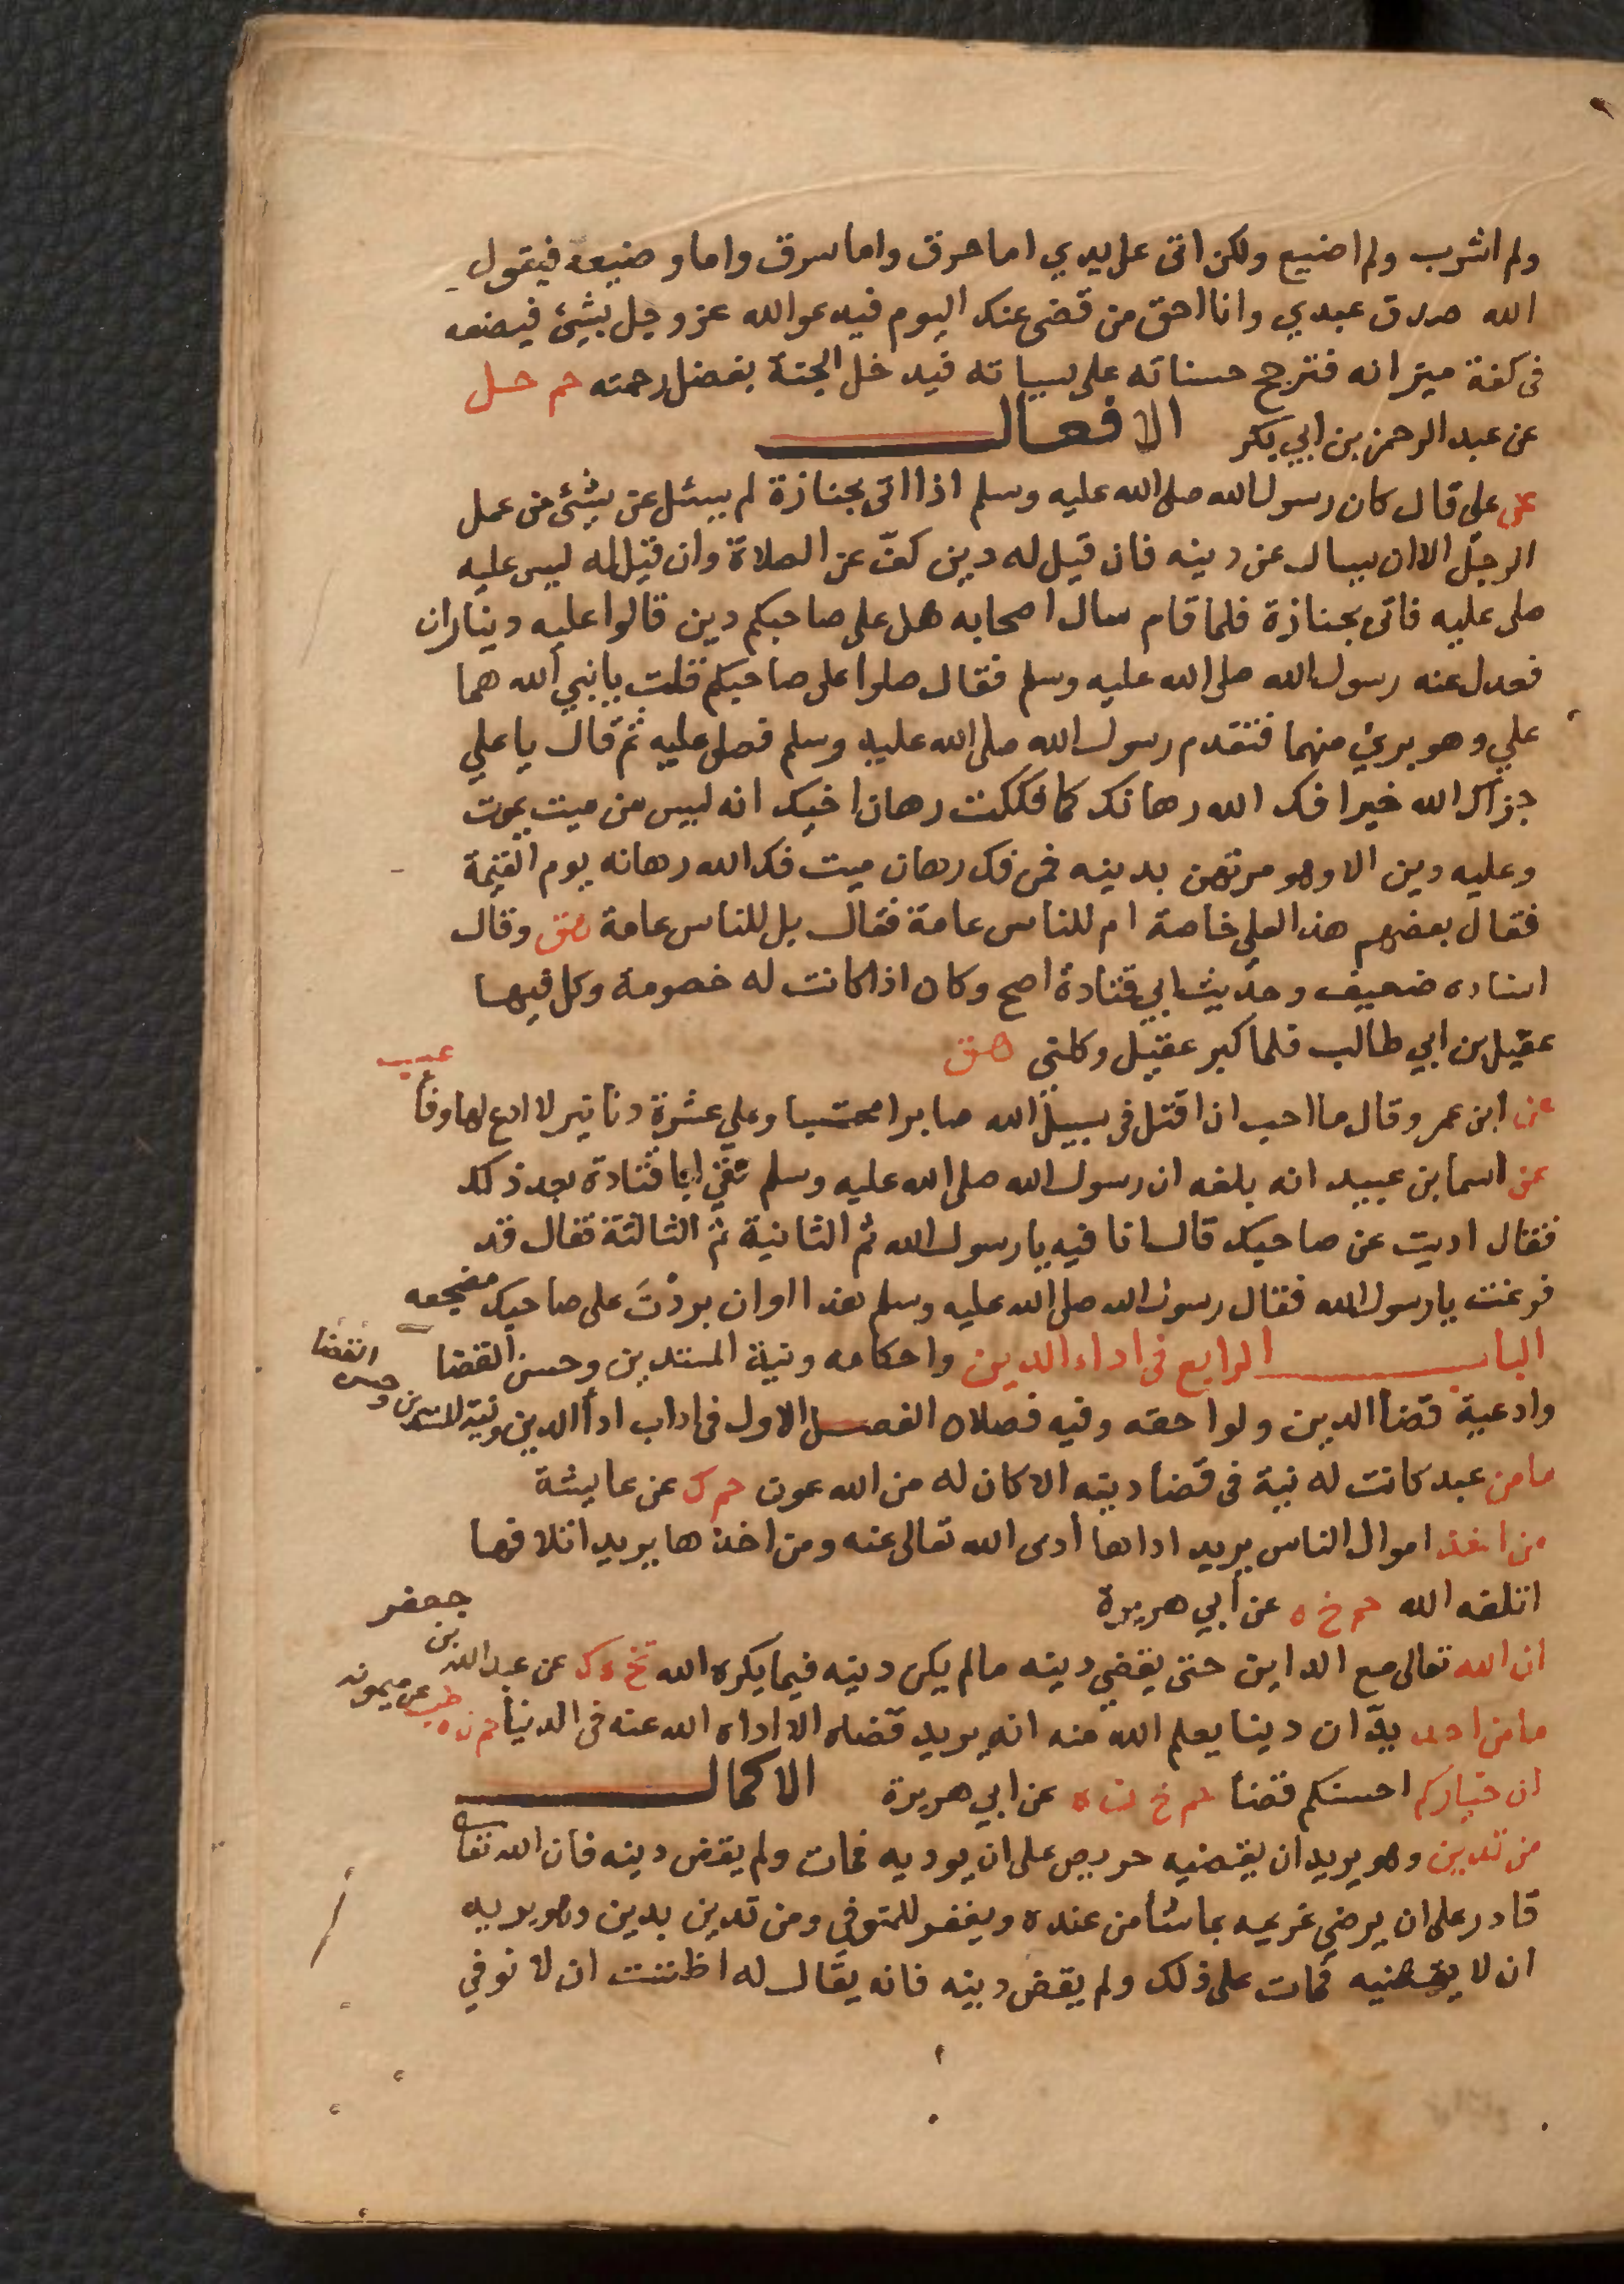 ولم اشرب ولم اضيع ولكن اتى على يدي اما حرق واما سرق واما وضيعة فيقول
الله صدق عبدي وانا احق من قضى عنك اليوم فيدعوالله عز وجل بشيئ فيضعه
فى كفة ميزانه فترجح حسناته على سياته فيدخل الجنة بفضل رحمته حم حل
عن عبد الرحمن بن ابي بكر الافعال
عن على قال كان رسول الله صلى الله عليه وسلم اذا اتى بجنازة لم يسئل عن شيئ من عمل
الرجل الا ان يسال عن دينه فان قيل له دين كفّ عن الصلاة وان قيل له ليس عليه
صلى عليه فاتى بجنازة فلما قام سال اصحابه هل على صاحبكم دين قالوا عليه ديناران
فعدل عنه رسول الله صلى الله عليه وسلم فقال صلوا على صاحبكم فقلت يا نبي الله هما
علي وهو بريئ منهما فتقدم رسول الله صلى الله عليه وسلم فصلى عليه ثم قال يا علي
جزاك الله خيرا فك الله رهانك كما فككت رهان اخيك انه ليس من ميت يموت
وعليه دين الا وهو مرتهن بدينه فمن فك رهان ميت فك الله رهانه يوم القيمة
فقال بعضهم هذا لعلي خاصة ام للناس عامة فقال بل للناس عامة هق وقال
اسناده ضعيف وحديث ابي قتادة اصح وكان اذا كانت له خصومة وكل فيها
عقيل بن ابي طالب فلما كبر عقيل وكلني هق
عن ابن عمر وقال ما احب ان اقتل فى سبيل الله صابرا محتسبا وعلي عشرة دنانير لا ادع لها وفأ
عب
عن اسما بن عبيد انه بلغه ان رسول الله صلى الله عليه وسلم لقي ابا قتادة بعد ذلك
فقال اديت عن صاحبك قال انا فيه يا رسول الله ثم الثانية ثم الثالثة فقال قد
فرغت يا رسول الله فقال رسول الله صلى الله عليه وسلم هذا اوان بردْتَ على صاحبك مضجعه
الباب الرابع فى اداء الدين واحكامه ونية المستدين وحسن القضا
وادعية قضأ الدين ولواحقه وفيه فصلان الفصل الاول فى اداب ادأ الدين ونية المستدين وحسن القضا
ما من عبد كانت له نية فى قضأ دينه الا كان له من الله عون حم ك عن عايشة
من اخذ اموال الناس يريد اداها أدى الله تعالى عنه ومن اخذها يريد اتلافها
اتلفه الله حم خ ه عن أبي هريرة
ان الله تعالى مع الداين حتى يقضي دينه مالم يكن دينه فيما يكره الله تخ ه ك عن عبد الله بن جعفر
ما من احد يدّان دينا يعلم الله منه انه يريد قضاه الا اداه الله عنه فى الدنيا حم ن ه حب عن ميمونه
ان خياركم احسنكم قضأ حم خ ن ه عن ابي هريرة الاكمال
من تدين وهو يريد ان يقضيه حريص على ان يوديه فمات ولم يقض دينه فان الله تعا
قادر على ان يرضي غريمه بما شأ من عنده ويغفر للمتوفي ومن تدين بدين وهو يريد
ان لا يقضيه فمات على ذلك ولم يقض دينه فانه يقال له اظننت ان لا نوفي